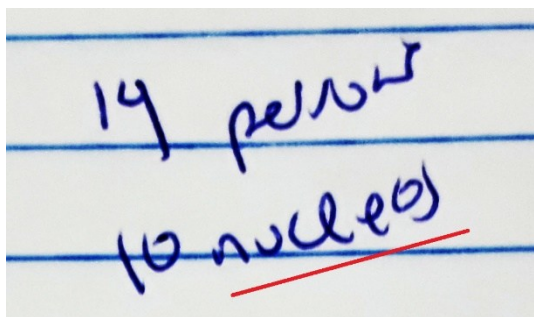 14 personas
10 nucleos